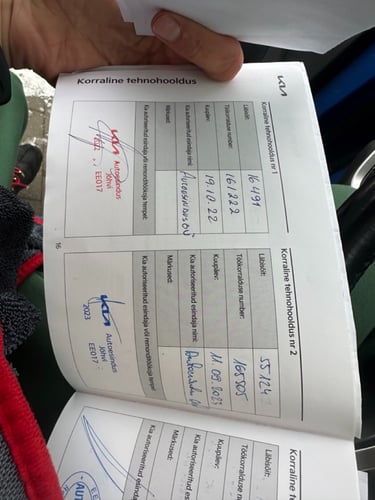 Korraline tehnohooldus
KIA
Korraline tehnohooldus nr 1
Läbisõit: 16 491
Töökorralduse number: 161222
Kuupäev: 19.10.22
Kia autoriseeritud esindaja nimi:
Märkused:
Kia autoriseeritud esindaja või remonditöökoja tempel:
KIA Autopesindus
Jõhvi
2022 EE017
Korraline tehnohooldus nr 2
Läbisõit: 55.124
Töökorralduse number: 165805
Kuupäev: 11.09.2023
Kia autoriseeritud esindaja nimi:
Märkused:
Kia autoriseeritud esindaja või remonditöökoja tempel:
KIA Autoesindus
Jõhvi
2023 EE017
16
Korraline
Läbisõit:
Töökorralduse
Kuupäev:
Kia autoriseeritud
Märkused:
Kia autoriseeritud